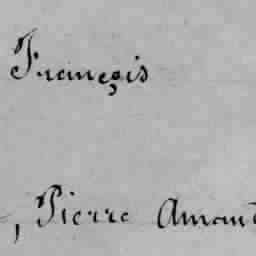 François
, Pierre Amant